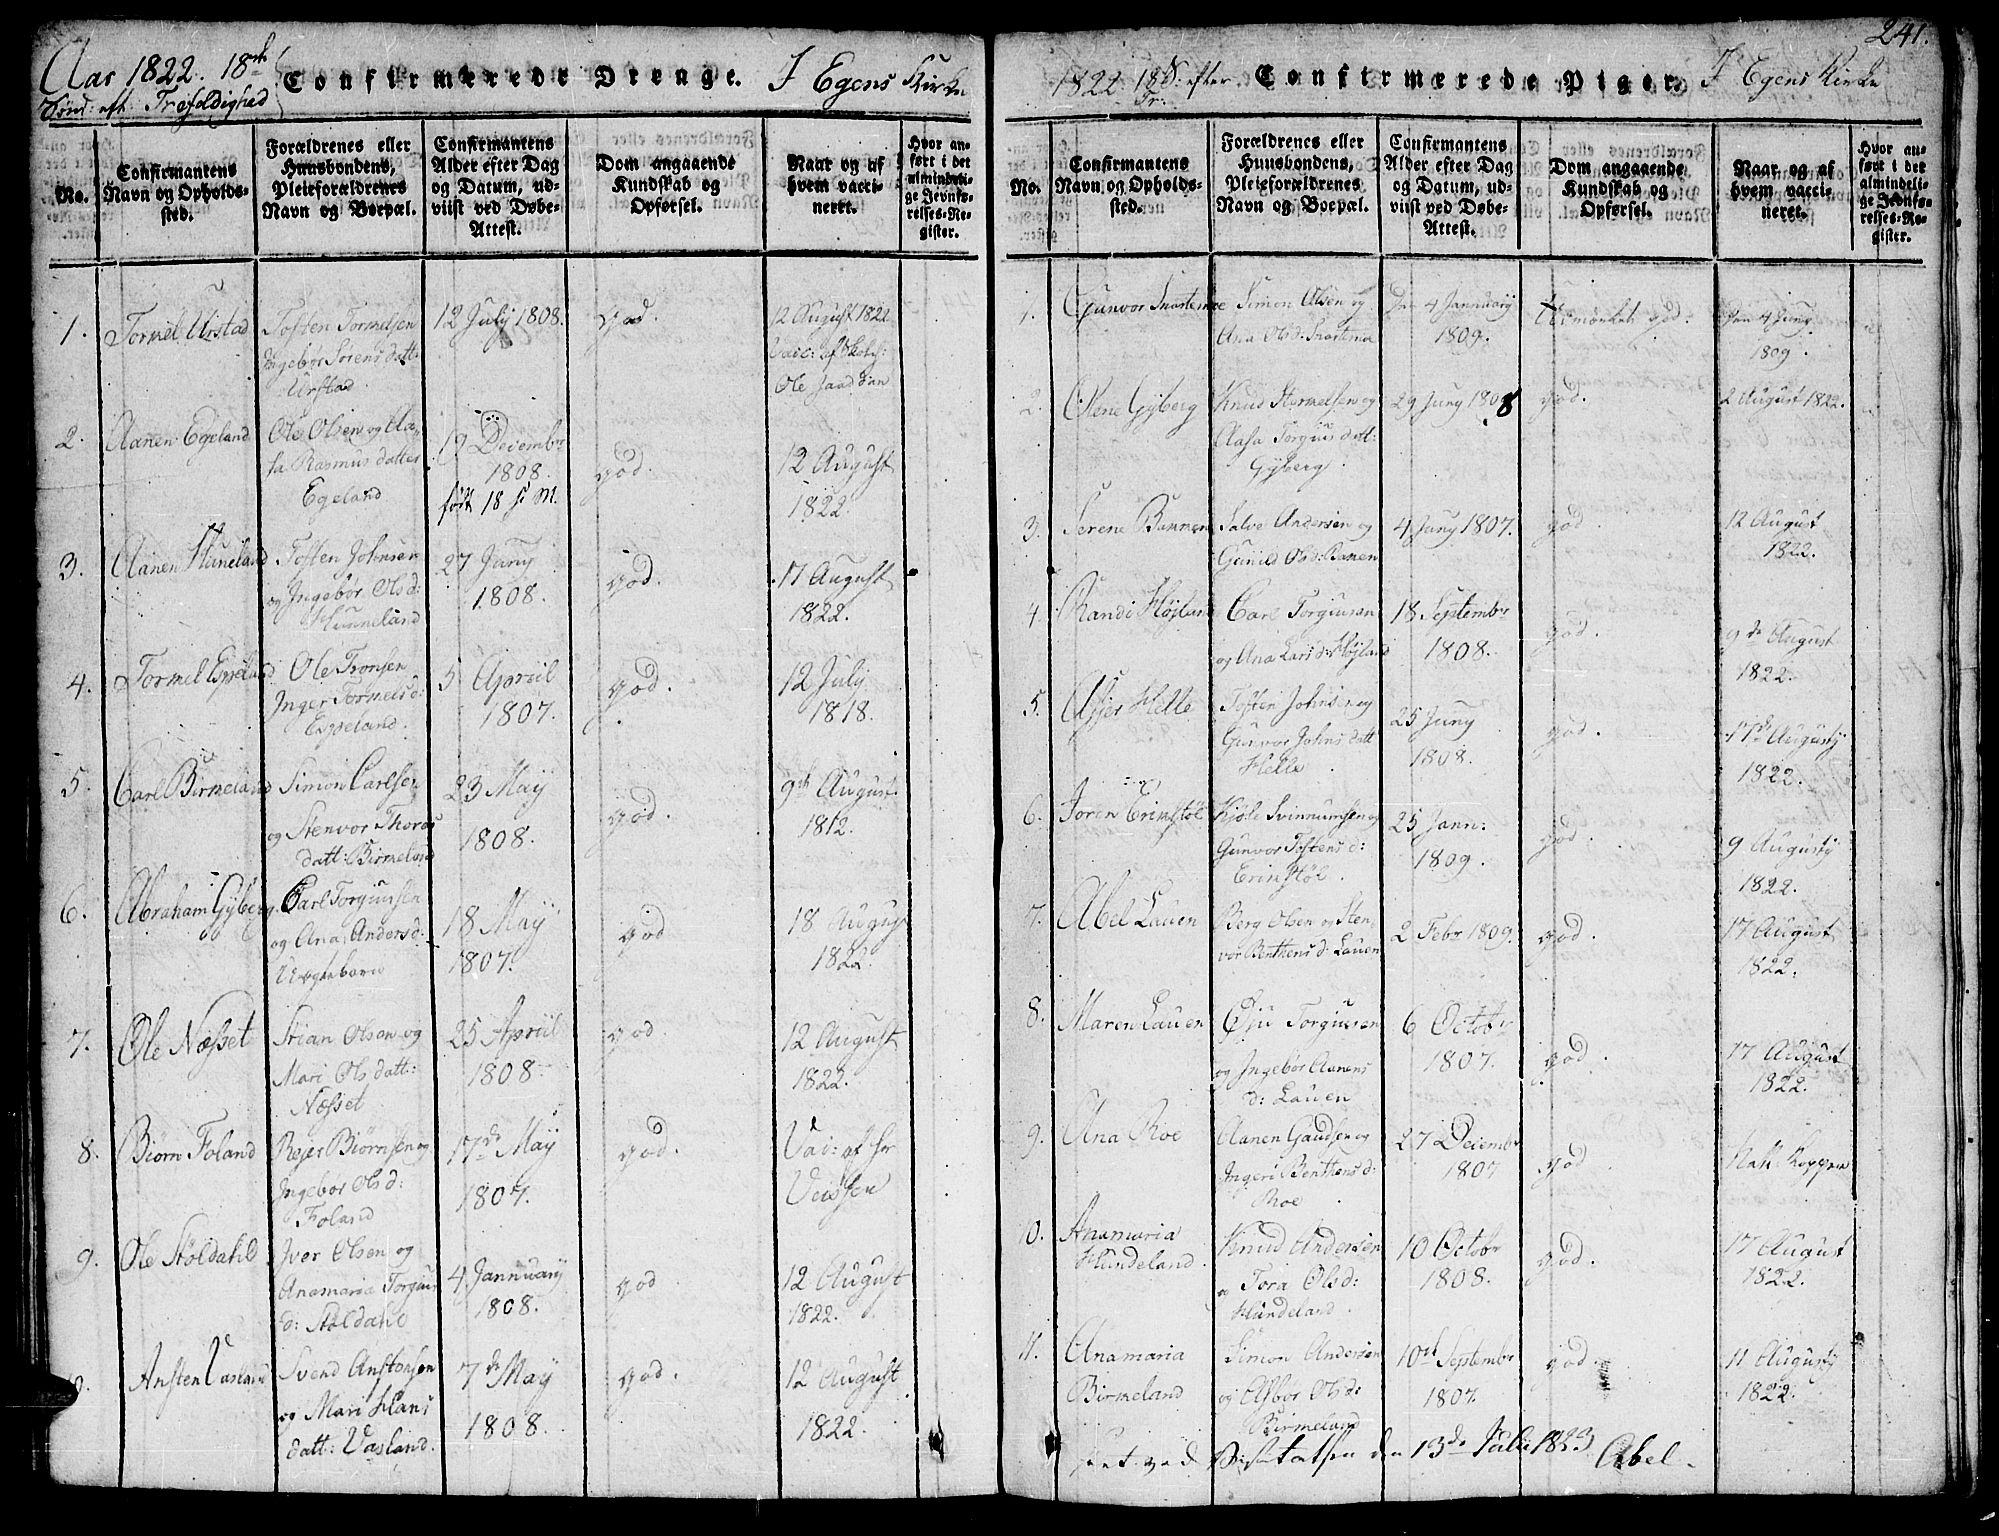 Aar 1822. 18de
Sønd: eft: Trefoldighed
Confirmerede Drenge. I Egens Kirke
No.
Confirmantens
Navn og Opholds-
sted.
Forældrenes eller
Huusbondens,
Pleieforældrenes
Navn og Boepæl.
Confirmantens
Alder efter Dag
og Datum, ud-
viist ved Døbe-
Attest.
Dom angaaende
Kundskab og
Opførsel.
Naar og af
hvem vacci-
neret.
Hvor an-
ført i det
almindeli-
ge Jevnfø-
relses-Re-
gister.
1. Tormel Urstad
Tosten Tormelsen
Ingebor Sørens datt:
Urstad
12 July 1808.
god.
12 August 1822
Vacc: af Skoleh:
Ole
2. Aanen Egeland
Ole Olsen og Aa-
sa Rasmus datter
Egeland
19 Decembr
1808.
født 18 s: M.
god.
12 August
1822.
3. Aanen Huneland
Tosten Johnsen
og Ingebør Olsd:
Hunneland
27 Juny
1808.
god.
17 August
1822.
4. Tormel Espeland
Ole Tronsen
Inger Tormelsd:
Espeland.
5 Apriil
1807.
god.
12 July
1818.
5. Carl Birmeland
Simon Carlsen
og Stenvor Thoras
datt: Birmeland
23 Maÿ
1808.
god.
9de August
1812.
6. Abraham Gÿberg.
Carl Torgiussen
og Ana Andersd:
18 Maÿ
1807.
god
18 August
1822.
7. Ole Næsset
Stian Olsen og
Mari Ols datt:
Næsset
25 Apriil
1808.
god.
12 August
1822.
8. Biørn Foland
Rejer Biørnsen og
Ingebor Olsd:
Foland
17de Maÿ
1807.
god.
Vac: af hr
Veissen
9. Ole Støldahl
Iver Olsen og
Anamaria Torgius
d: Støldahl
4 Jannuarÿ
1808.
god
12 August
1822.
10. Ansten Vasland
Svend Anstensen
og Mari Hans
datt: Vasland.
7de Maÿ
1808.
god.
12 August
1822.
241.
1822. 18 S. efter
Tr:
Confirmerede Piger. I Egens Kirke
No.
Confirmantens
Navn og Opholds-
sted.
Forældrenes eller
Huusbondens,
Pleieforældrenes
Navn og Boepæl.
Confirmantens
Alder efter Dag
og Datum, ud-
viist ved Døbe-
Attest.
Dom angaaende
Kundskab og
Opførsel.
Naar og af
hvem vacci-
neret.
Hvor an-
ført i det
almindeli-
ge Jevnfø-
relses-Re-
gister.
1. Gunvor Snartemoe
Simon Olsen og
Ana Olsd: Snartemo
Den 4 Jannuarÿ
1809.
Udmærket god.
Den 4 Juny
1809.
2. Olene Gÿberg
Knud Stormelsen og
Aasa Torgius datt:
Gÿberg.
29 Juny 1808
god.
2 August 1822.
3. Serene Bannen
Salve Andersen og
Gunild Olsd: Banen
4 Juny 1807.
god
12 August
1822.
4. Randi Højland
Carl Torgiusen
og Ana Lars d: Højland
18 Septembr
1808.
god.
9de August
1822.
5. Asjer Helle
Tosten Johnsen og
Gunvor Johns datt
Helle.
25 Juny
1808.
god.
17de Augusty
1822.
6. Joren Erinstøl
Kjøle Svinnumsen og
Gunvor Tostensd:
Erinstøl.
25 Jann:
1809.
god.
9 Augusty
1822.
7. Abel Lauen
Berg Olsen og Sten
vor Benthensd: Lauen
2 Febr 1809.
god.
17 August
1822.
8. Maren Lauen
Øju Torgiusen
og Ingebør Aanens
d: Lauen
6 Octobr
1807.
god.
17 August
1822.
9. Ana Roe
Aanen Gaudsen og
Ingeri Benthensd:
Roe
27 Decembr
1807
god
Nat: Kopper
10. Anamaria
Hundeland.
Knud Andersen
og Tora Olsd:
Hundeland.
10 Octobr
1808.
god.
17 August
1822.
11. Anamaria
Birmeland
Simon Andersen
og Asbor Olsd:
Birmeland
10de Septembr
1807.
god.
11 Augusty
1822.
Seet ved Visitatsen den 13de Juli 1823 Abel.